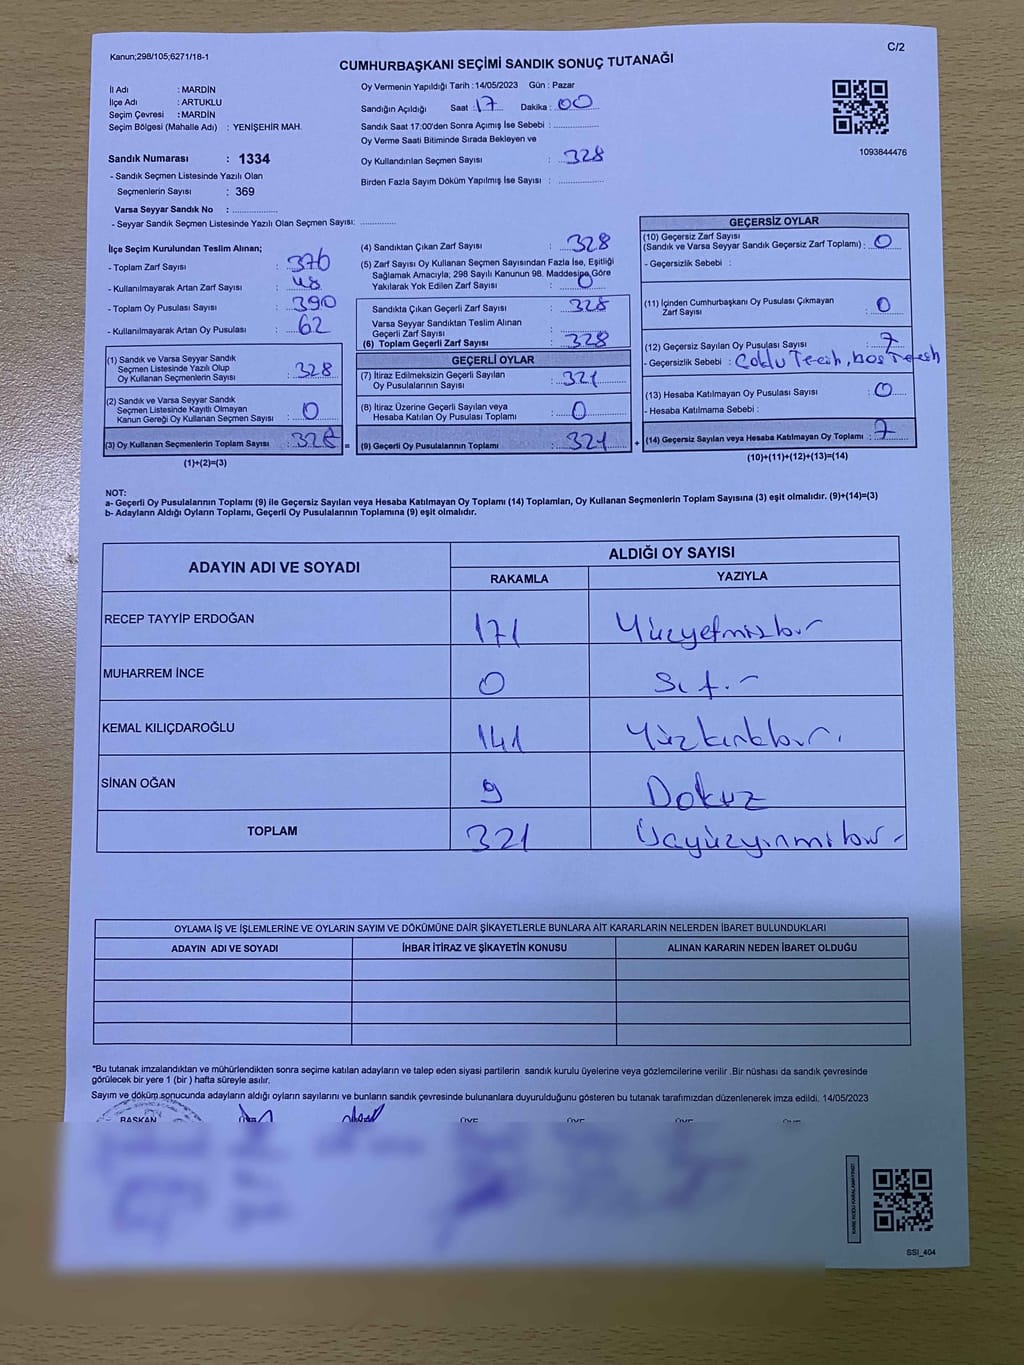 Kanun;298/105;6271/18-1
C/2
CUMHURBAŞKANI SEÇİMİ SANDIK SONUÇ TUTANAĞI
İl Adı : MARDİN
İlçe Adı : ARTUKLU
Seçim Çevresi : MARDİN
Seçim Bölgesi (Mahalle Adı) : YENİŞEHİR MAH.
Sandık Numarası : 1334
- Sandık Seçmen Listesinde Yazılı Olan
Seçmenlerin Sayısı : 369
Varsa Seyyar Sandık No : ..................
- Seyyar Sandık Seçmen Listesinde Yazılı Olan Seçmen Sayısı: ..............
Oy Vermenin Yapıldığı Tarih :14/05/2023 Gün : Pazar
Sandığın Açıldığı Saat : 17 Dakika : 00
Sandık Saat 17:00'den Sonra Açımış İse Sebebi : ..................
Oy Verme Saati Bitiminde Sırada Bekleyen ve
Oy Kullandırılan Seçmen Sayısı : 328
Birden Fazla Sayım Döküm Yapılmış İse Sayısı : ..................
1093844476
İlçe Seçim Kurulundan Teslim Alınan;
- Toplam Zarf Sayısı : 376
- Kullanılmayarak Artan Zarf Sayısı : 48
- Toplam Oy Pusulası Sayısı : 390
- Kullanılmayarak Artan Oy Pusulası : 62
(1) Sandık ve Varsa Seyyar Sandık
Seçmen Listesinde Yazılı Olup
Oy Kullanan Seçmenlerin Sayısı : 328
(2) Sandık ve Varsa Seyyar Sandık
Seçmen Listesinde Kayıtlı Olmayan
Kanun Gereği Oy Kullanan Seçmen Sayısı : 0
(3) Oy Kullanan Seçmenlerin Toplam Sayısı : 328 =
(1)+(2)=(3)
(4) Sandıktan Çıkan Zarf Sayısı : 328
(5) Zarf Sayısı Oy Kullanan Seçmen Sayısından Fazla İse, Eşitliği
Sağlamak Amacıyla; 298 Sayılı Kanunun 98. Maddesine Göre
Yakılarak Yok Edilen Zarf Sayısı : 0
Sandıkta Çıkan Geçerli Zarf Sayısı : 328
Varsa Seyyar Sandıktan Teslim Alınan
Geçerli Zarf Sayısı :
(6) Toplam Geçerli Zarf Sayısı : 328
GEÇERLİ OYLAR
(7) İtiraz Edilmeksizin Geçerli Sayılan
Oy Pusulalarının Sayısı : 321
(8) İtiraz Üzerine Geçerli Sayılan veya
Hesaba Katılan Oy Pusulası Toplamı : 0
(9) Geçerli Oy Pusulalarının Toplamı : 321 +
GEÇERSİZ OYLAR
(10) Geçersiz Zarf Sayısı
(Sandık ve Varsa Seyyar Sandık Geçersiz Zarf Toplamı) : 0
- Geçersizlik Sebebi :
(11) İçinden Cumhurbaşkanı Oy Pusulası Çıkmayan
Zarf Sayısı : 0
(12) Geçersiz Sayılan Oy Pusulası Sayısı : 7
- Geçersizlik Sebebi :
(13) Hesaba Katılmayan Oy Pusulası Sayısı : 0
- Hesaba Katılmama Sebebi :
(14) Geçersiz Sayılan veya Hesaba Katılmayan Oy Toplamı : 7
(10)+(11)+(12)+(13)=(14)
NOT:
a- Geçerli Oy Pusulalarının Toplamı (9) ile Geçersiz Sayılan veya Hesaba Katılmayan Oy Toplamı (14) Toplamları, Oy Kullanan Seçmenlerin Toplam Sayısına (3) eşit olmalıdır. (9)+(14)=(3)
b- Adayların Aldığı Oyların Toplamı, Geçerli Oy Pusulalarının Toplamına (9) eşit olmalıdır.
ADAYIN ADI VE SOYADI ALDIĞI OY SAYISI
RAKAMLA YAZIYLA
RECEP TAYYİP ERDOĞAN 171 Yüzyetmişbir
MUHARREM İNCE 0 Sıfır
KEMAL KILIÇDAROĞLU 141 Yüzkırkbir
SİNAN OĞAN 9 Dokuz
TOPLAM 321 Üçyüzyirmibir
OYLAMA İŞ VE İŞLEMLERİNE VE OYLARIN SAYIM VE DÖKÜMÜNE DAİR ŞİKAYETLERLE BUNLARA AİT KARARLARIN NELERDEN İBARET BULUNDUKLARI
ADAYIN ADI VE SOYADI İHBAR İTİRAZ VE ŞİKAYETİN KONUSU ALINAN KARARIN NEDEN İBARET OLDUĞU
*Bu tutanak imzalandıktan ve mühürlendikten sonra seçime katılan adayların ve talep eden siyasi partilerin sandık kurulu üyelerine veya gözlemcilerine verilir .Bir nüshası da sandık çevresinde
görülecek bir yere 1 (bir ) hafta süreyle asılır.
Sayım ve döküm sonucunda adayların aldığı oyların sayılarını ve bunların sandık çevresinde bulunanlara duyurulduğunu gösteren bu tutanak tarafımızdan düzenlenerek imza edildi. 14/05/2023
BAŞKAN ÜYE ÜYE ÜYE ÜYE
SSI_404